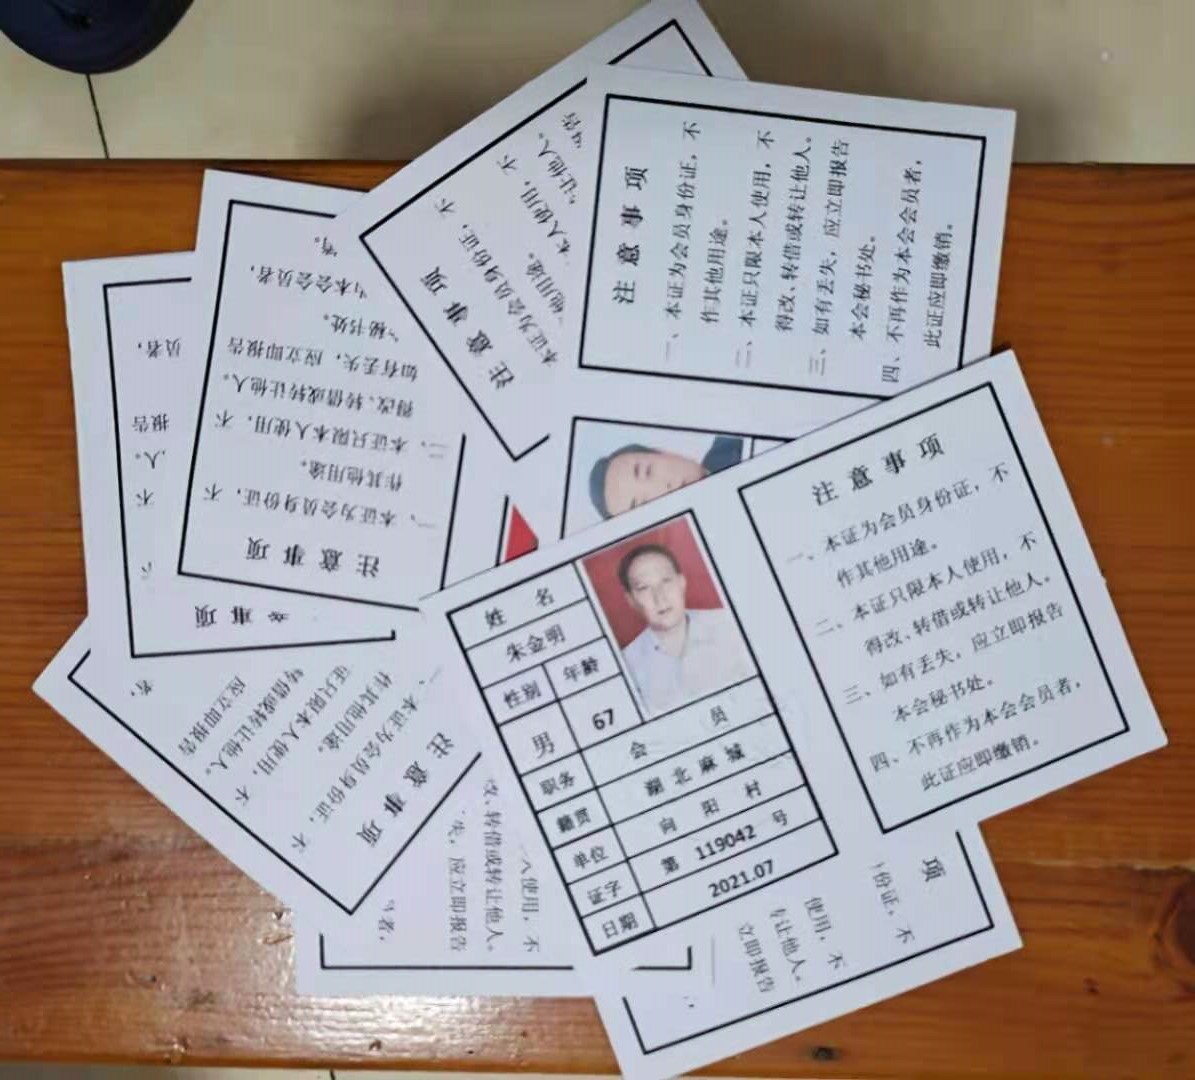 姓 名
朱金明
性别 年龄
男 67
职务 会 员
籍贯 湖北麻城
单位 向阳村
证字 第 119042 号
日期 2021.07
注意事项
一、本证为会员身份证，不
作其他用途。
二、本证只限本人使用，不
得改、转借或转让他人。
三、如有丢失，应立即报告
本会秘书处。
四、不再作为本会会员者，
此证应即缴销。
注意事项
一、本证为会员身份证，不
作其他用途。
二、本证只限本人使用，不
得改、转借或转让他人。
三、如有丢失，应立即报告
本会秘书处。
四、不再作为本会会员者，
此证应即缴销。
注意事项
本证为会员身份证，不
他用途。
本人使用，不
让他人。
告
注意事项
一、本证为会员身份证，不
作其他用途。
二、本证只限本人使用，不
得改、转借或转让他人。
如有丢失，应立即报告
秘书处。
为本会会员者，
销。
意事项
不
不
人。
报告
员者，
注意事项
一、本证为会员身份证，不
作其他用途。
证只限本人使用，不
转借或转让他人。
应立即报告
者，
人使用，不
改、转借或转让他人。
失，应立即报告
者，
项
份证，不
使用，不
让他人。
立即报告